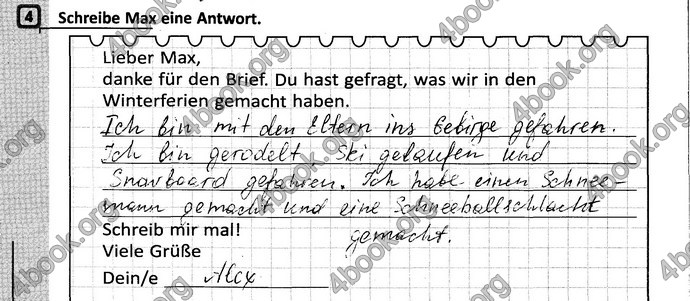 4 Schreibe Max eine Antwort.
Lieber Max,
danke für den Brief. Du hast gefragt, was wir in den
Winterferien gemacht haben.
Ich bin mit den Eltern ins Gebirge gefahren.
Ich bin gerodelt, Ski gelaufen und
Snowboard gefahren. Ich habe einen Schnee-
mann gemacht und eine Schneeballschlacht
gemacht.
Schreib mir mal!
Viele Grüße
Dein/e Alex
4book.org
4book.org
4book.org
4book.org
4book.org
4book.org
4book.org
4book.org